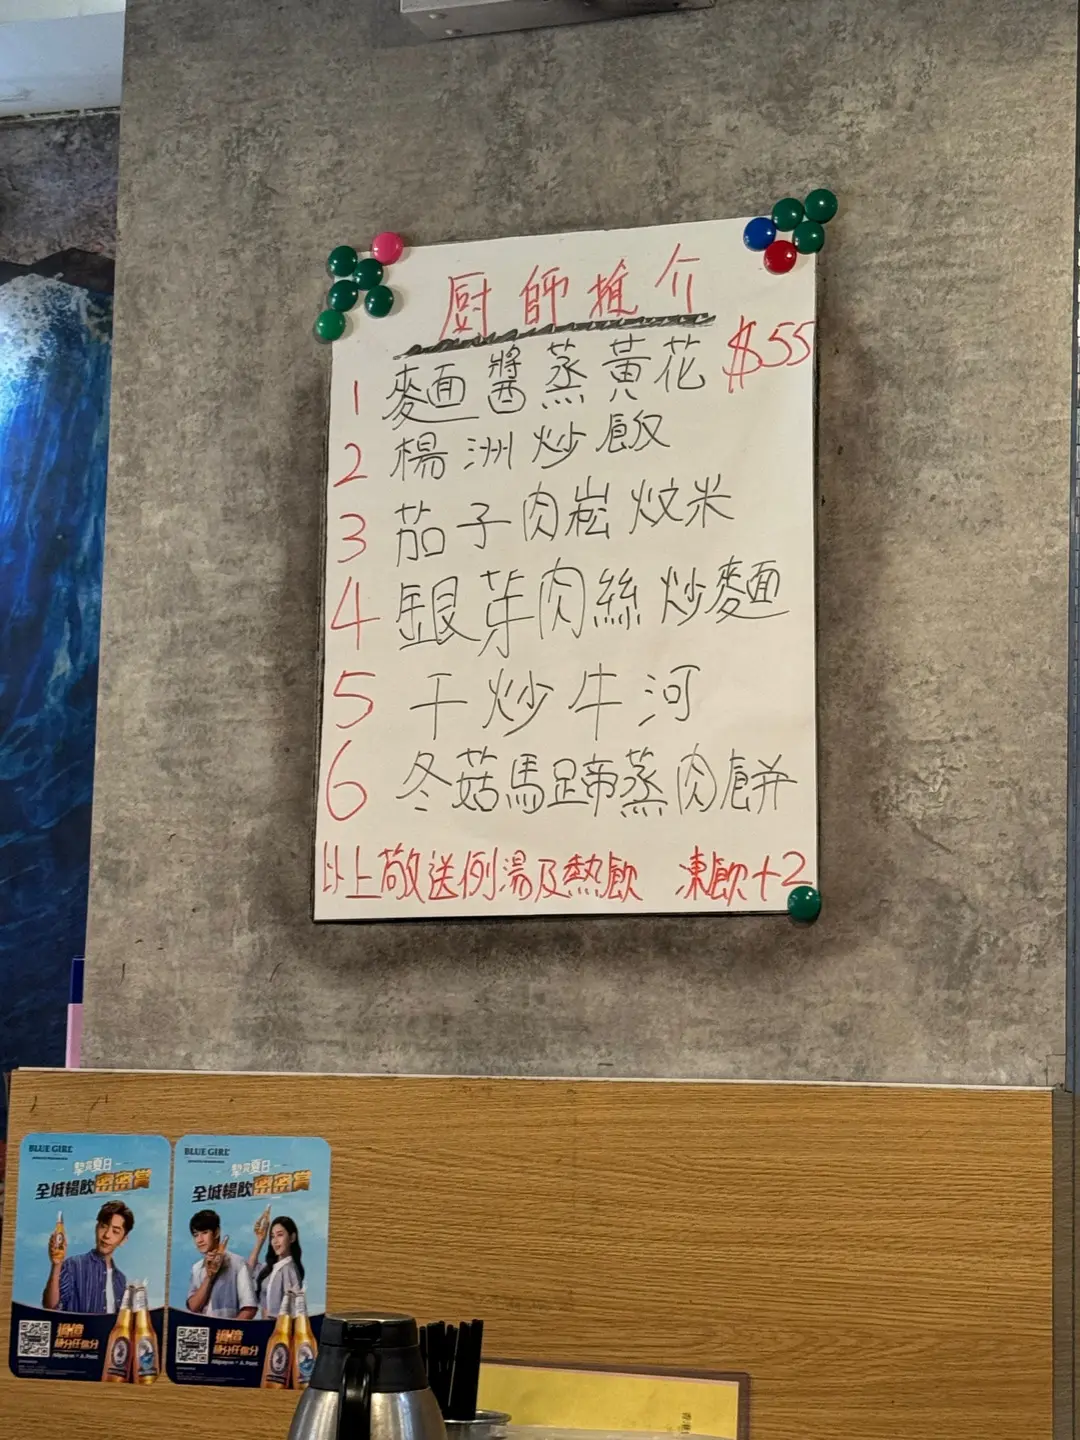 厨師推介
$55
1 麵醬蒸黃花
2 楊洲炒飯
3 茄子肉崧炆米
4 銀芽肉絲炒麵
5 干炒牛河
6 冬菇馬蹄蒸肉餅
以上敬送例湯及熱飲 凍飲+2
BLUE GIRL
夏日
全城暢飲密密賞
BLUE GIRL
夏日
全城暢飲密密賞